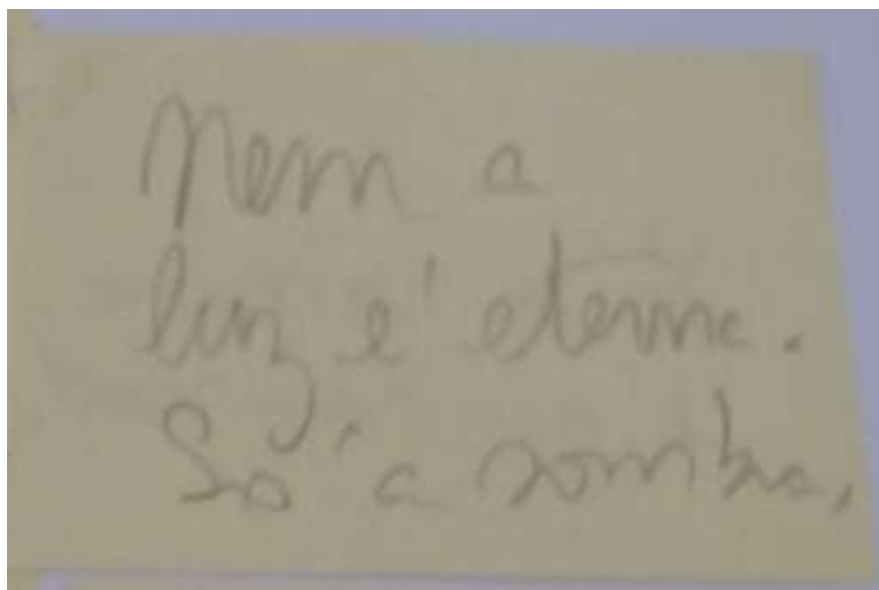 Nem a
luz é eterna.
Só a sombra.